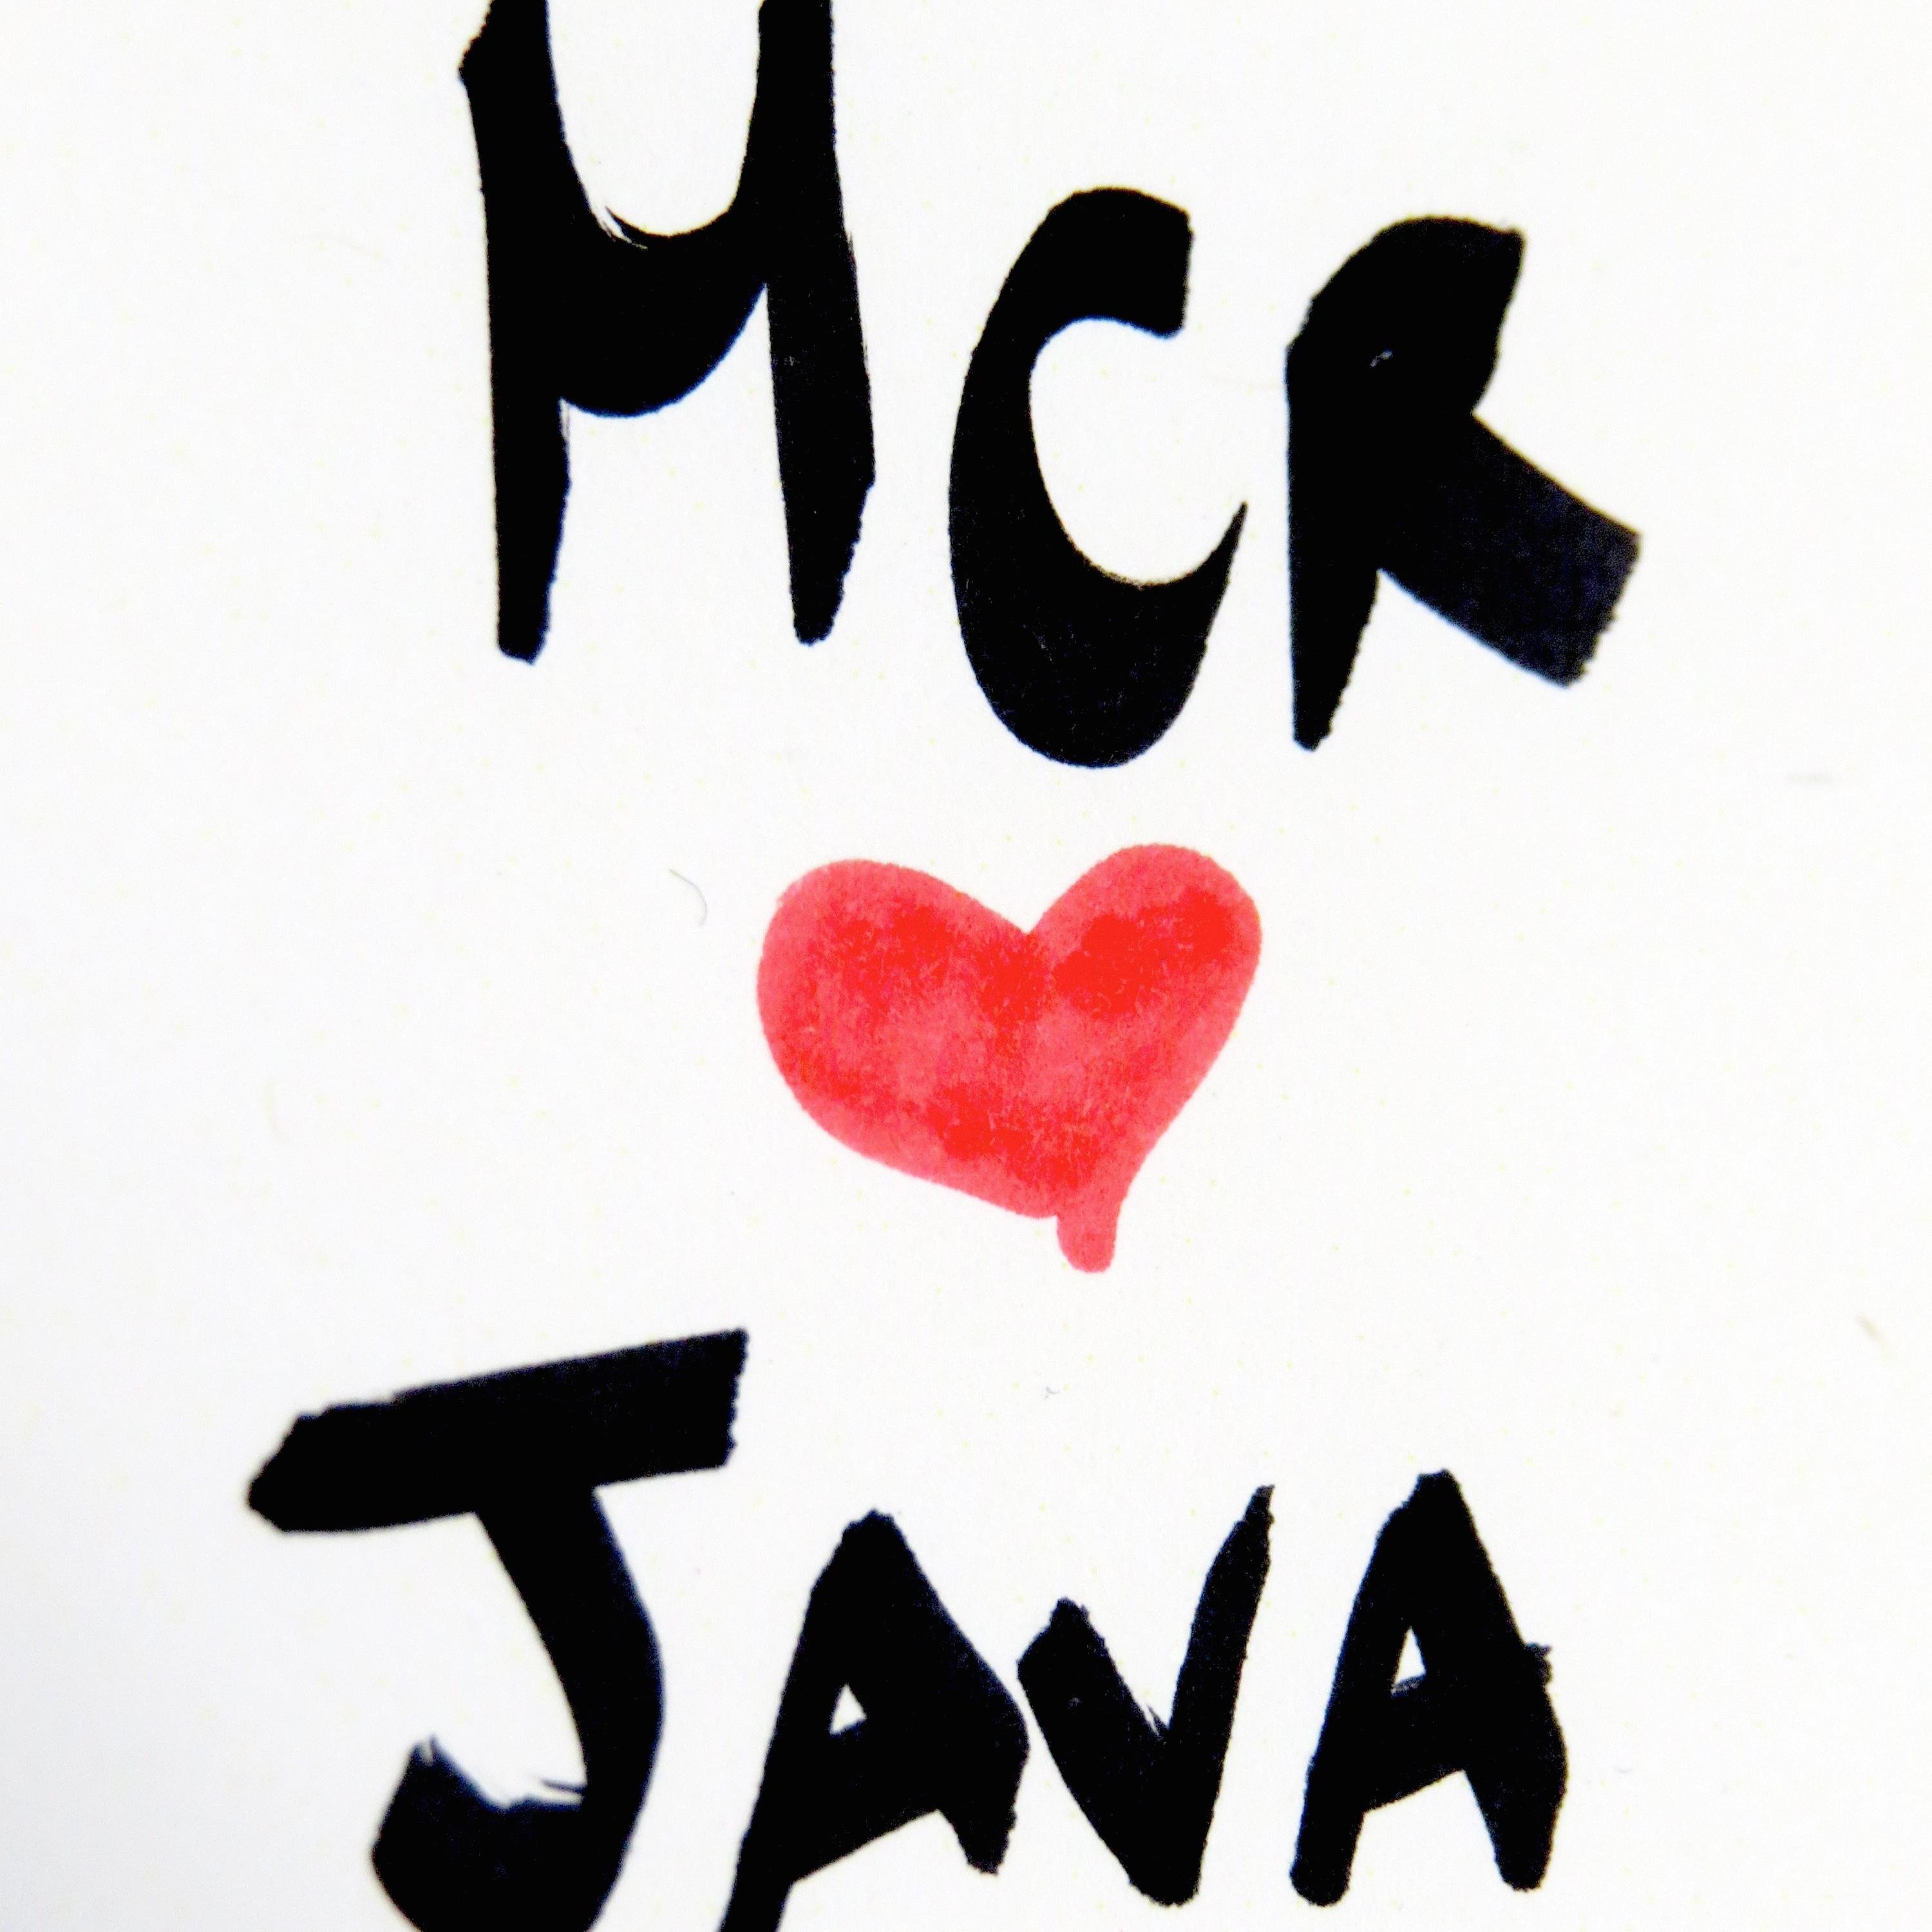 MCR
JAVA